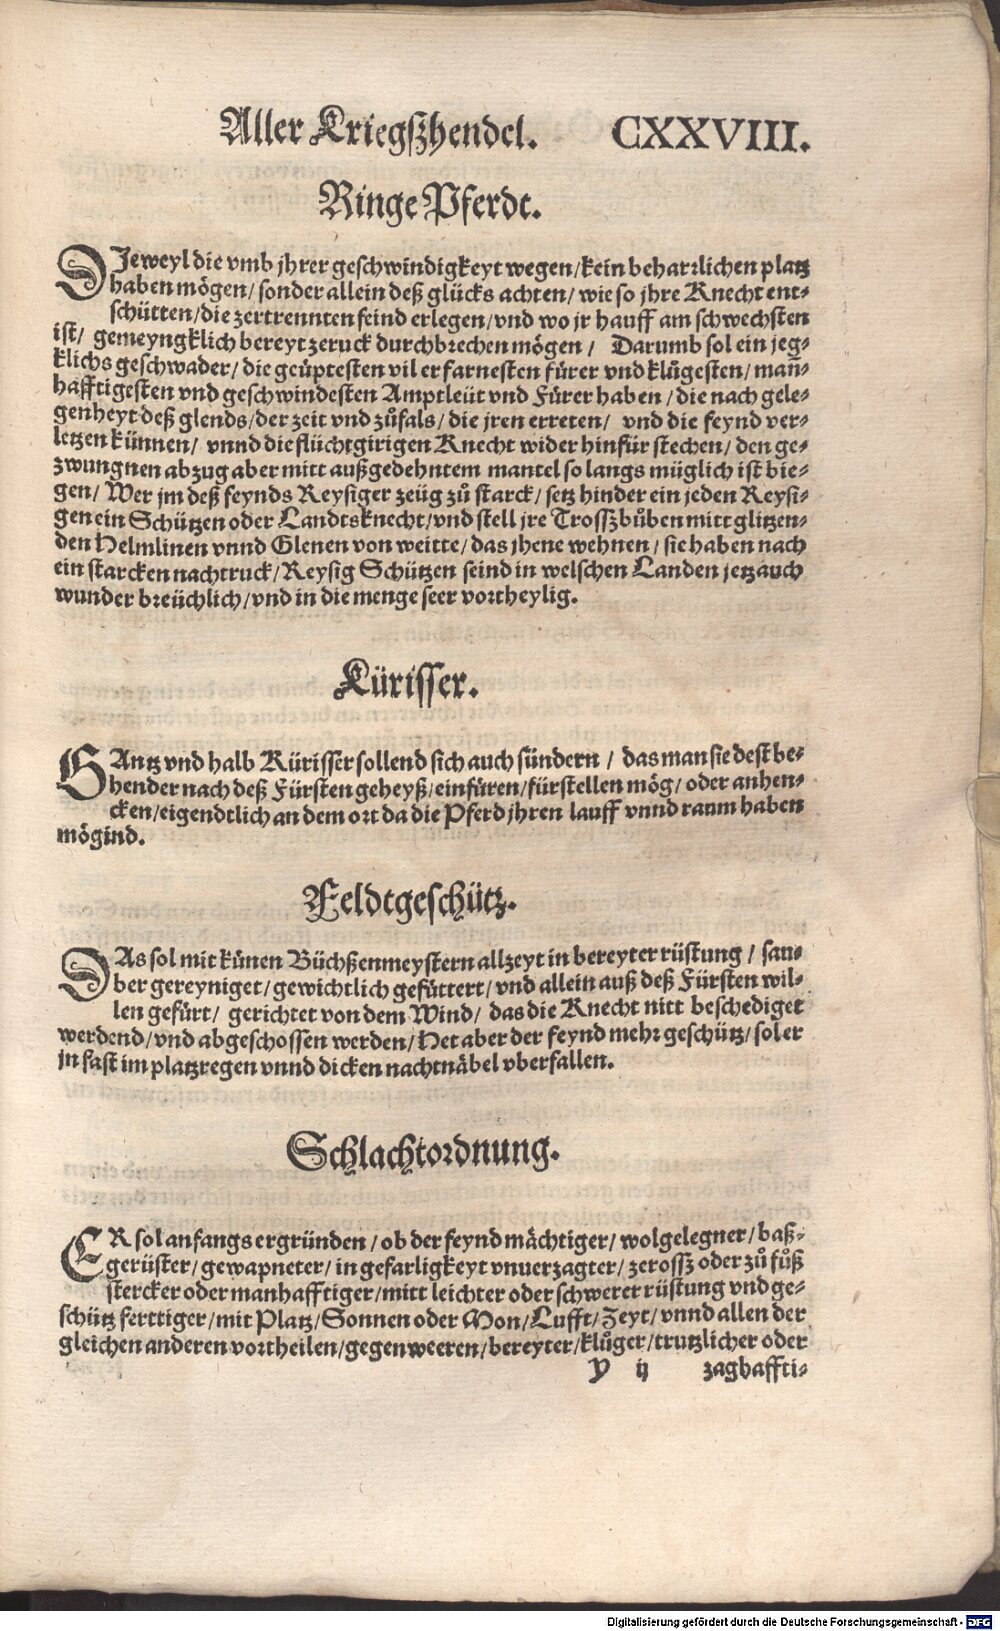 Aller Kriegßhendel. CXXVIII.
Ringe Pferdt.
DJeweyl die vmb jhrer geschwindigkeyt wegen/ kein beharrlichen platz
haben mögen/ sonder allein deß glücks achten/ wie so jhre Knecht ent-
schütten/ die zertrennten feind erlegen/ vnd wo jr hauff am schwechsten
ist/ gemeyngklich bereyt zeruck durchbrechen mögen/ Darumb sol ein jeg-
klichs geschwader/ die geüptesten vil erfarnesten fürer vnd klůgesten/ mañ-
hafftigesten vnd geschwindesten Amptleüt vnd Fürer haben/ die nach gele-
genheyt deß glends/ der zeit vnd zůfals/ die jren erreten/ vnd die feynd ver-
letzen künnen/ vnnd die flüchtgirigen Knecht wider hinfür stechen/ den ge-
zwungnen abzug aber mitt außgedehntem mantel so langs müglich ist bie-
gen/ Wer jm deß feynds Reysiger zeüg zů starck/ setz hinder ein jeden Reysi-
gen ein Schützen oder Landtsknecht/ vnd stell jre Trosszbůben mitt glitzen-
den Helmlinen vnnd Glenen von weitte/ das jhene wehnen/ sie haben nach
ein starcken nachtruck/ Reysig Schützen seind in welschen Landen jetz auch
wunder breüchlich/ vnd in die menge seer vortheylig.
Kürisser.
GAntz vnd halb Kürisser sollend sich auch sündern/ das man sie dest be-
hender nach deß Fürsten geheyß/ einfüren/ fürstellen mög/ oder anhen-
cken/ eigendtlich an dem ort da die Pferd jhren lauff vnnd raum haben
mögind.
Feldtgeschütz.
DAs sol mit künen Büchßenmeystern allzeyt in bereyter rüstung/ sau-
ber gereyniget/ gewichtlich gefüttert/ vnd allein auß deß Fürsten wil-
len gefürt/ gerichtet von dem Wind/ das die Knecht nitt beschediget
werdend/ vnd abgeschossen werden/ Het aber der feynd mehr geschütz/ sol er
jn fast im platzregen vnnd dicken nachtnäbel vberfallen.
Schlachtordnung.
ER sol anfangs ergründen/ ob der feynd mächtiger/ wolgelegner/ baß-
gerüster/ gewapneter/ in gefarligkeyt vnuerzagter/ zerossz oder zů fůß
stercker oder manhafftiger/ mitt leichter oder schwerer rüstung vnd ge-
schütz ferttiger/ mit Platz/ Sonnen oder Mon/ Lufft/ Zeyt/ vnnd allen der
gleichen anderen vortheilen/ gegenweeren/ bereyter/ klůger/ trutzlicher oder
Y ij zaghaffti-
Digitalisierung gefördert durch die Deutsche Forschungsgemeinschaft - DFG